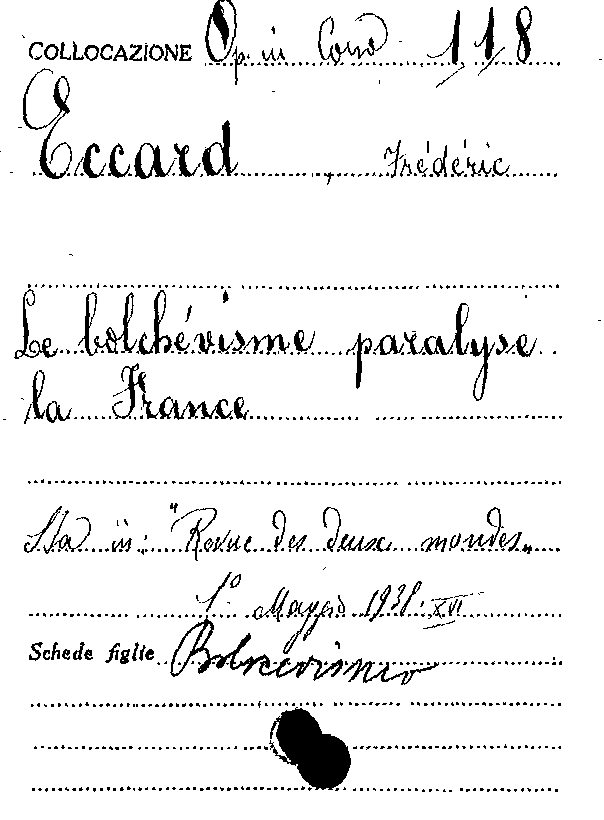 COLLOCAZIONE Op. in Corso 118
Eccard , Frédéric
Le bolchévisme paralyse
la France
Sta in: "Revue des deux mondes„
1° Maggio 1938. XVI
Schede figlie Bolscevismo